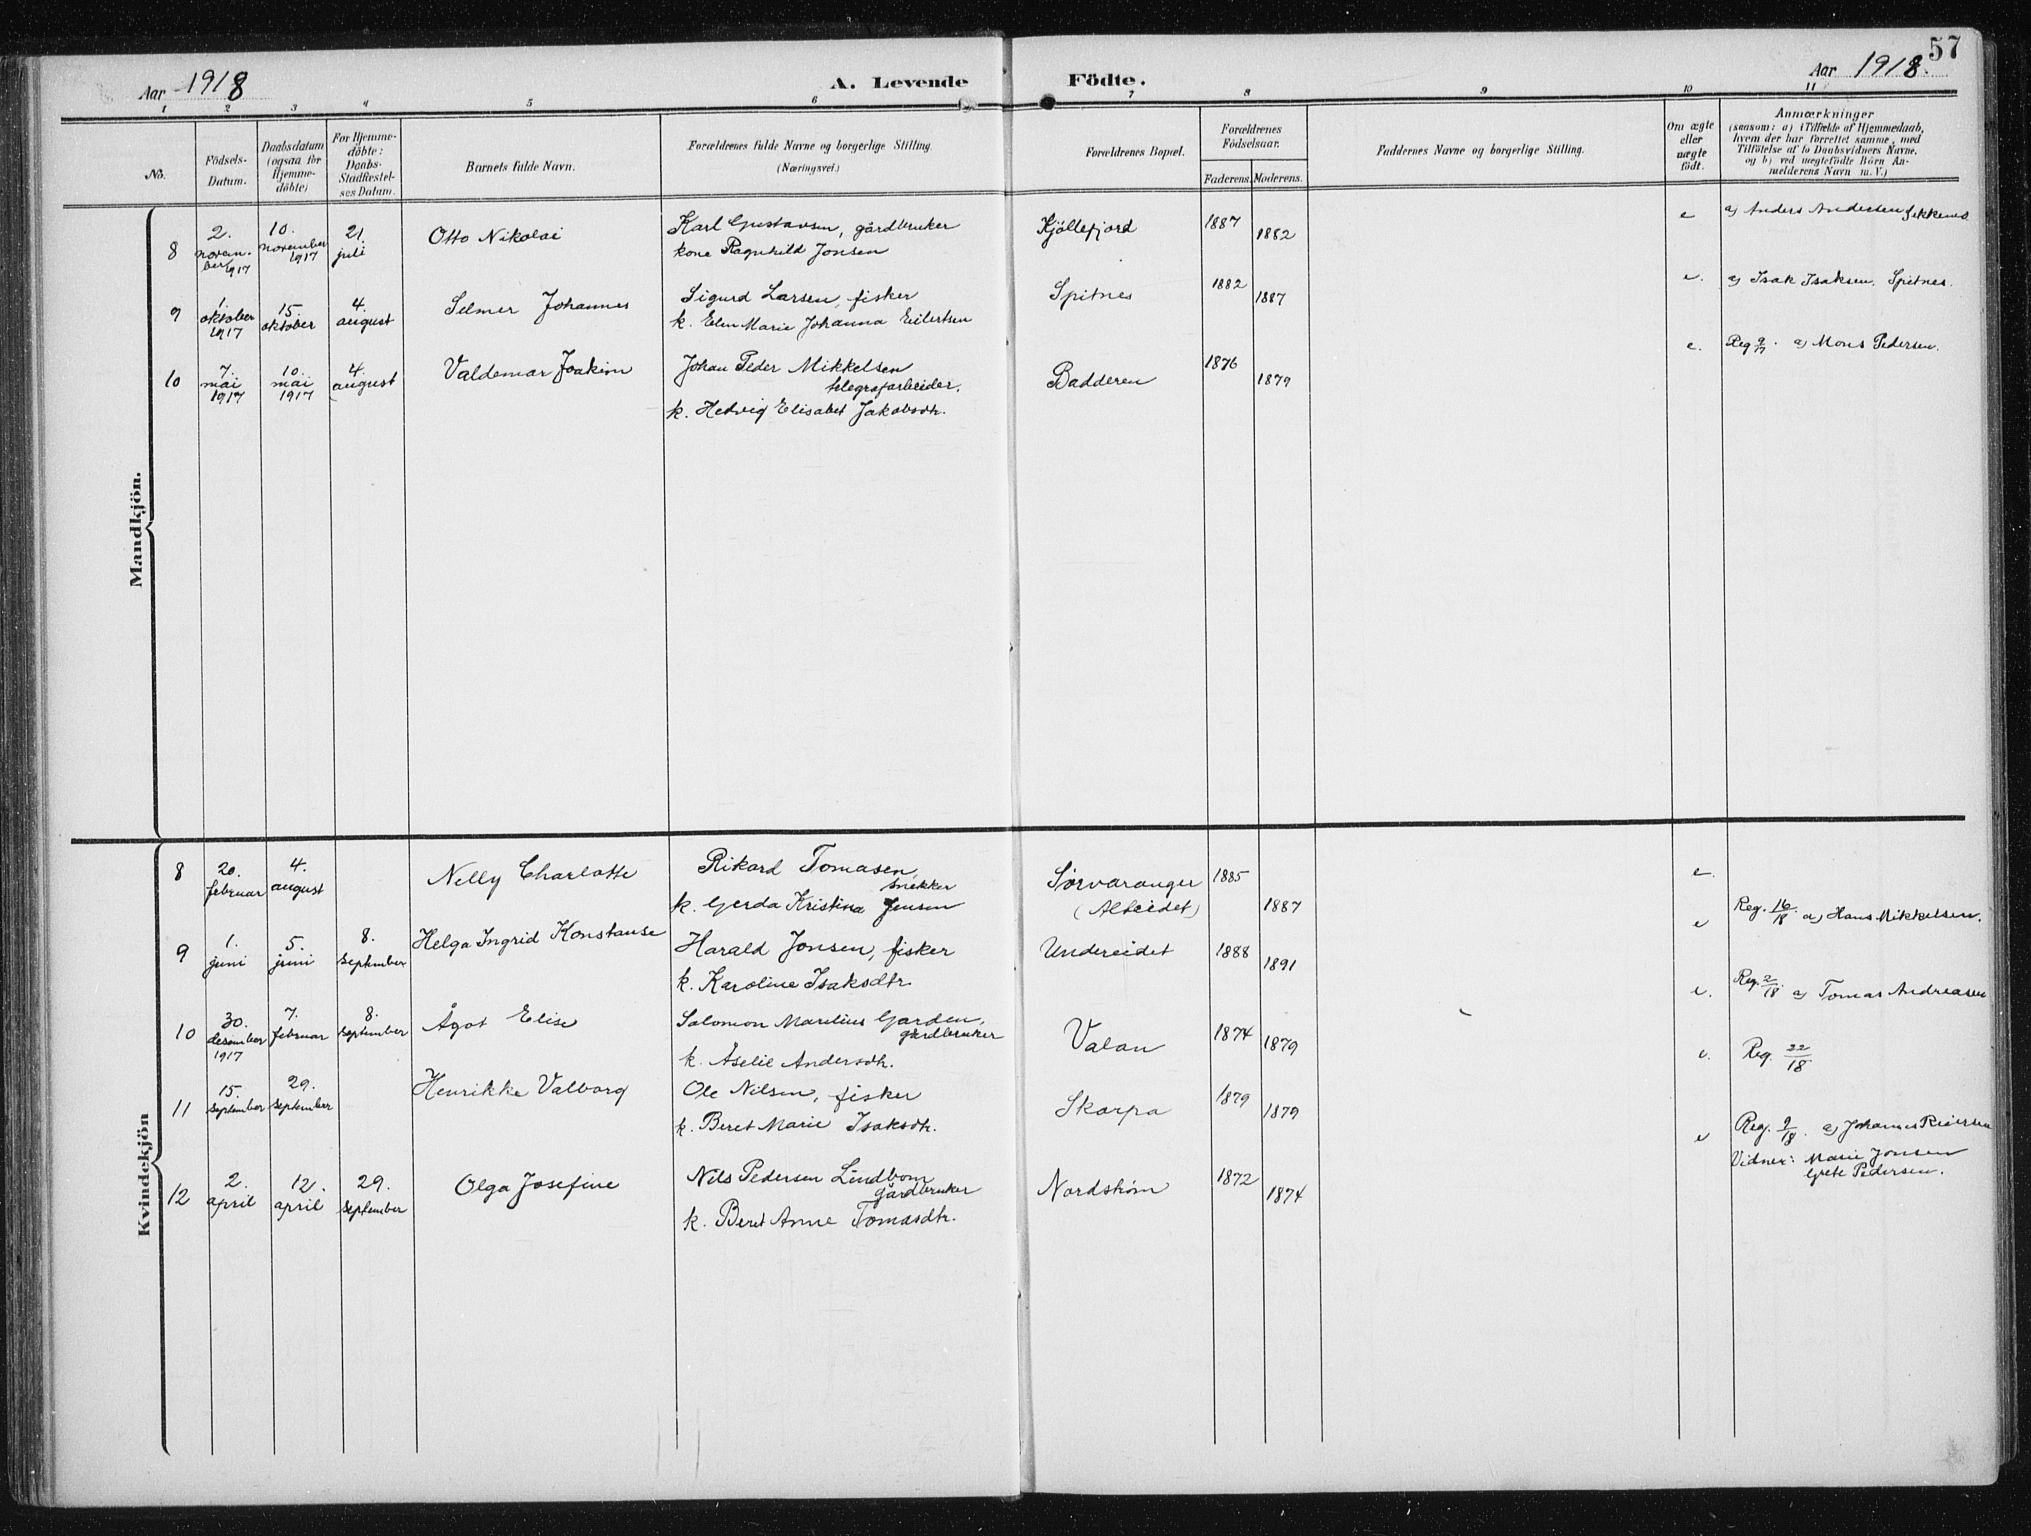 57
Aar 1918
A. Levende Födte.
Aar 1918.
1 2 3 4 5 6 7 8 9 10 11
No.
Födsels-
Datum.
Daabsdatum
(ogsaa for
Hjemme-
döbte)
For Hjemme-
döbte:
Daabs-
Stadfæstel-
ses Datum.
Barnets fulde Navn.
Forældrenes fulde Navne og borgerlige Stilling.
(Næringsvei.)
Forældrenes Bopæl.
Forældrenes
Födselsaar.
Faderens. Moderens.
Faddernes Navne og borgerlige Stilling.
Om ægte
eller
uægte
födt.
Anmærkninger
(saasom: a) i Tilfælde af Hjemmedaab,
hvem der har forrettet samme, med
Tilföielse af to Daabsvidners Navne,
og b) ved uægtefödte Börn An-
melderens Navn m. V.)
Mandkjön.
8
2.
novem-
ber 1917
10.
november
1917
21.
juli
Otto Nikolai
Karl Gustavsen, gårdbruker
kone Ragnhild Jonsen
Kjöllefjord
1887
1882
e
a) Anders Andersen
9
1.
oktober
1917
15.
oktober
4.
august
Selmer Johannes
Sigurd Larsen, fisker
k. Elen Marie Johanna Eilertsen
Spitnes
1882
1887
e.
a) Isak Isaksen, Spitnes.
10
7.
mai
1917
10.
mai
1917
4.
august
Valdemar Joakim
Johan Peder Mikkelsen
telegrafarbeider.
k. Hedvig Elisabet Jakobsdtr.
Badderen
1876
1879
e.
Reg a) Mons Pedersen.
Kvindekjön
8
20.
februar
4.
august
Nelly Charlotte
Rikard Tomasen,
snekker
k. Gerda Kristina Jensen
Sørvaranger
(Alteidet)
1885
1887
e.
9
1.
juni
5.
juni
8.
september
Helga Ingrid Konstanse
Harald Jonsen, fisker
k. Karoline Isaksdtr
Undereidet
1888
1891
e
Reg. 16/18 a) Hans Mikkelsen.
10
30.
desember
1917
7.
februar
8.
september
Ågot Elise
Salomon Marelius Garden,
gårdbruker
k. Åselie Andersdtr.
Valan
1874
1879
e.
Reg. 2/18. a) Tomas Andreasen
11
15.
september
29.
september
Henrikke Valborg
Ole Nilsen, fisker
k. Beret Marie Isaksdtr.
Skorpa
1879
1879
e.
Reg. 22/18
12
2.
april
12.
april
29.
september
Olga Josefine
Nils Pedersen Lindbom
gårdbruker
k. Beret Anne Tomasdtr.
Nordstrøm
1872
1874
e
Reg. 9/18. a) Johannes Reiersen
Vidner: Marie Jonsen
Grete Pedersen.